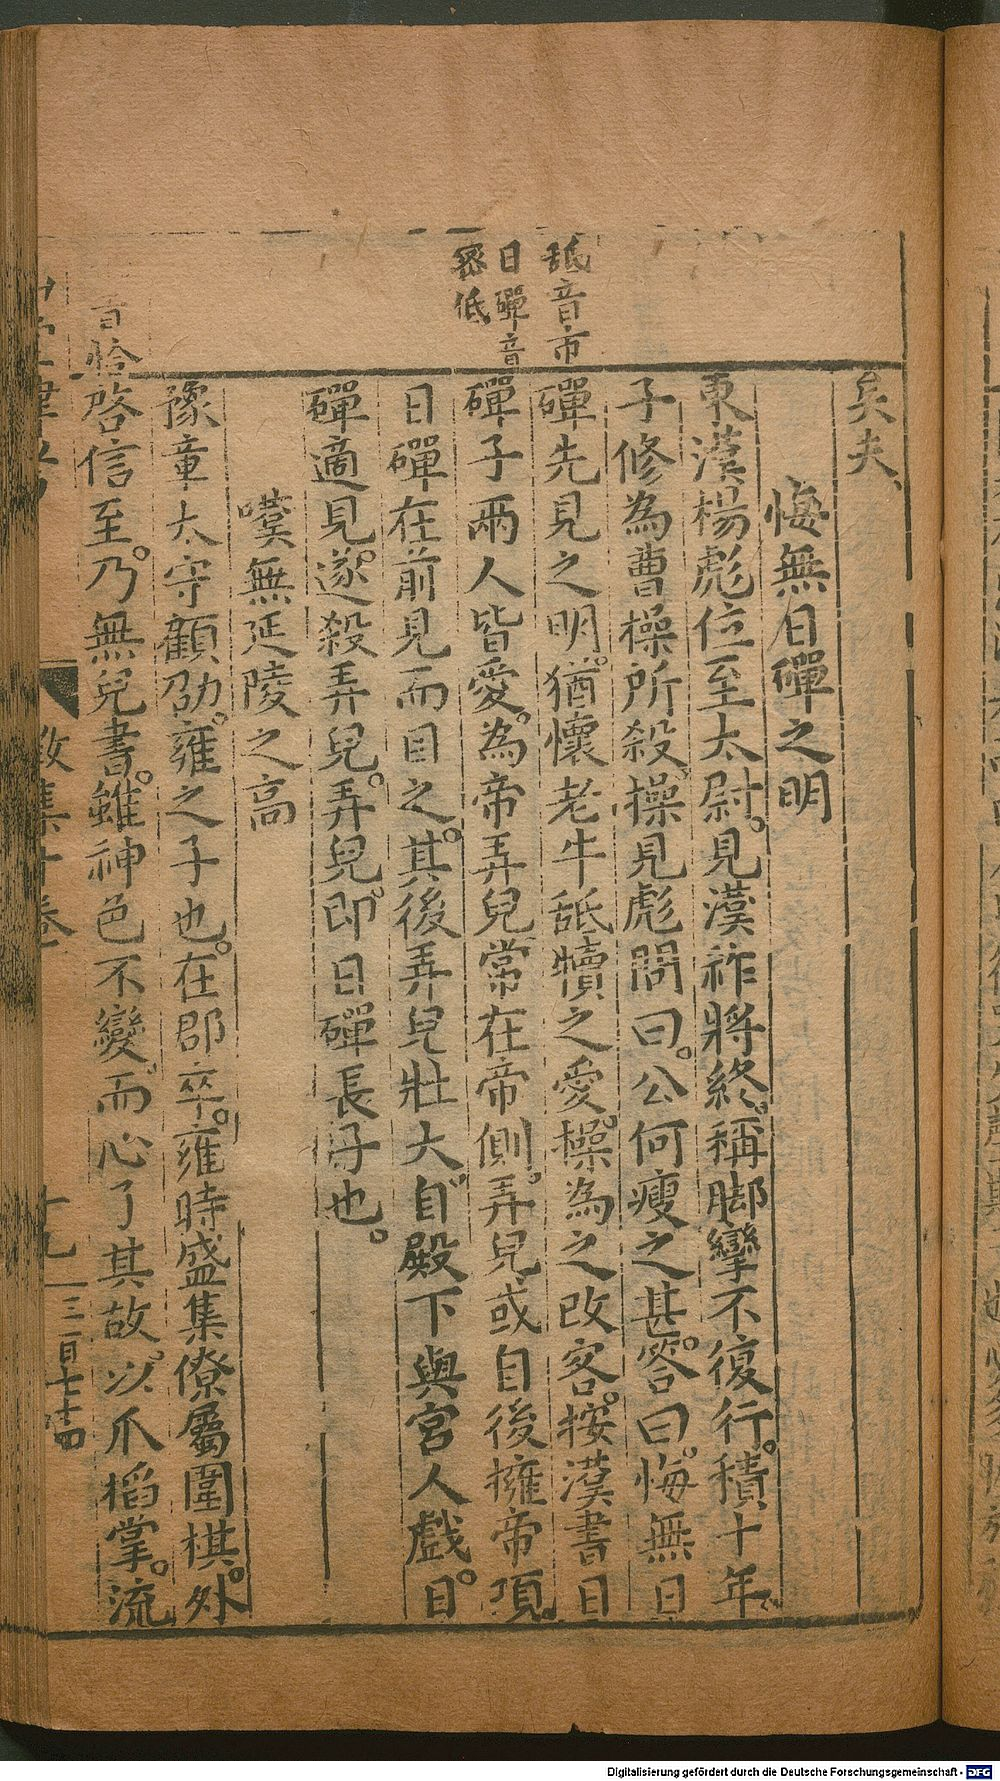 舐音市
日磾音
密低
矣夫
悔無日磾之明
東漢楊彪位至太尉。見漢祚將終。稱脚攣不復行。積十年。
子修為曹操所殺。操見彪問曰。公何瘦之甚。答曰。悔無日
磾先見之明。猶懷老牛舐犢之愛。操為之改容。按漢書日
磾子兩人皆愛。為帝弄兒。常在帝側。弄兒或自後擁帝項。
日磾在前見而目之。其後弄兒壯大。自殿下與宮人戲。日
磾適見。遂殺弄兒。弄兒即日磾長子也。
嘆無延陵之高
豫章太守顧劭。雍之子也。在郡卒。雍時盛集僚屬圍棋。外
啓信至。乃無兒書。雖神色不變。而心了其故。以爪掐掌。流
音恰
十九
三百七十四
Digitalisierung gefördert durch die Deutsche Forschungsgemeinschaft - DFG